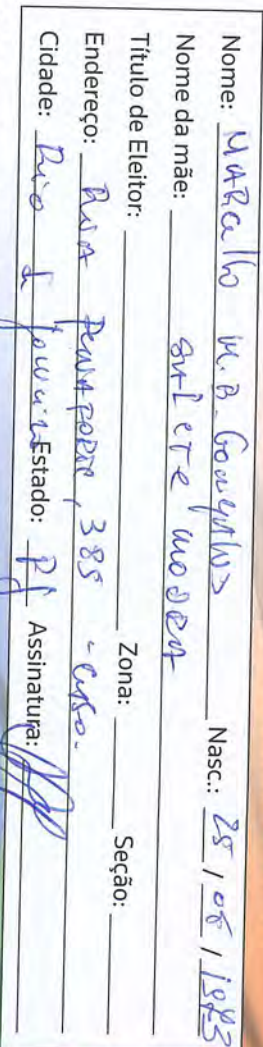 Nome: Marcello M.B. Gonçalves Nasc.: 25 / 06 / 1973
Nome da mãe: Salete
Título de Eleitor: Zona: Seção:
Endereço: Rua 385
Cidade: Rio de Janeiro Estado: RJ Assinatura: